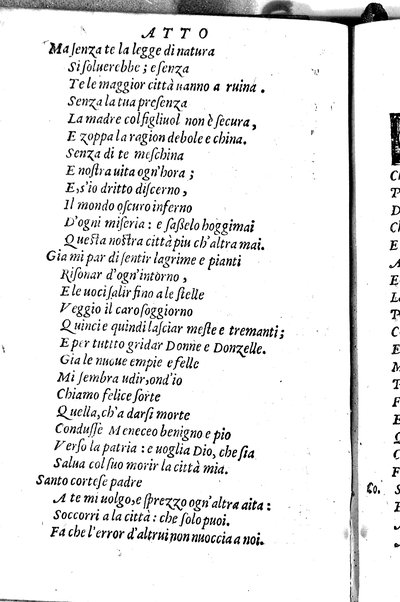 ATTO
Ma senza te la legge di natura
Si soluerebbe; e senza
Te le maggior città uanno a ruina.
Senza la tua presenza
La madre col figliuol non è secura,
E zoppa la ragion debole e china.
Senza di te meschina
E nostra uita ogn'hora;
E, s'io dritto discerno,
Il mondo oscuro inferno
D'ogni miseria: e saßelo hoggimai
Questa nostra città piu ch'altra mai.
Gia mi par di sentir lagrime e pianti
Risonar d'ogn'intorno,
E le uoci salir fino a le stelle
Veggio il caro soggiorno
Quinci e quindi lasciar meste e tremanti;
E per tutito gridar Donne e Donzelle.
Gia le nuoue empie e felle
Mi sembra udir, ond'io
Chiamo felice sorte
Quella, ch'a darsi morte
Condusse Meneceo benigno e pio
Verso la patria: e uoglia Dio, che sia
Salua col suo morir la città mia.
Santo cortese padre
A te mi uolgo, e sprezzo ogn'altra aita:
Soccorri a la città: che solo puoi.
Fa che l'error d'altrui non nuoccia a noi.
Co.